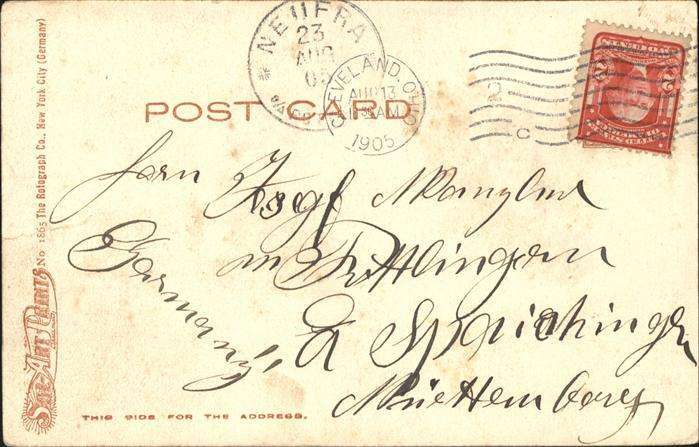 NEUFRA
23
AUG
05
CLEVELAND, OHIO
AUG 13
AM
1905
2
C
POST CARD
Herrn Josef
in
Germany,
Spaichingen
Württemberg
THIS SIDE FOR THE ADDRESS.
SOL-ART PRINTS
No 1865 The Rotograph Co., New York City (Germany)